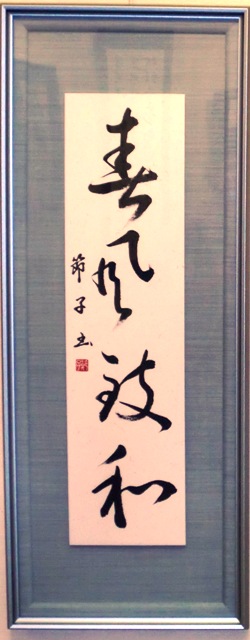 春風致和
節子書